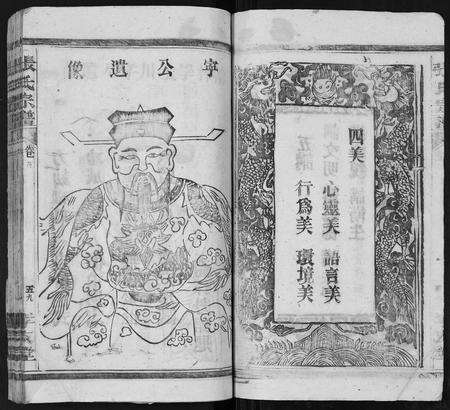 四美
心靈美 語言美
行爲美 環境美
寧公遺像
張氏宗譜
卷
五九